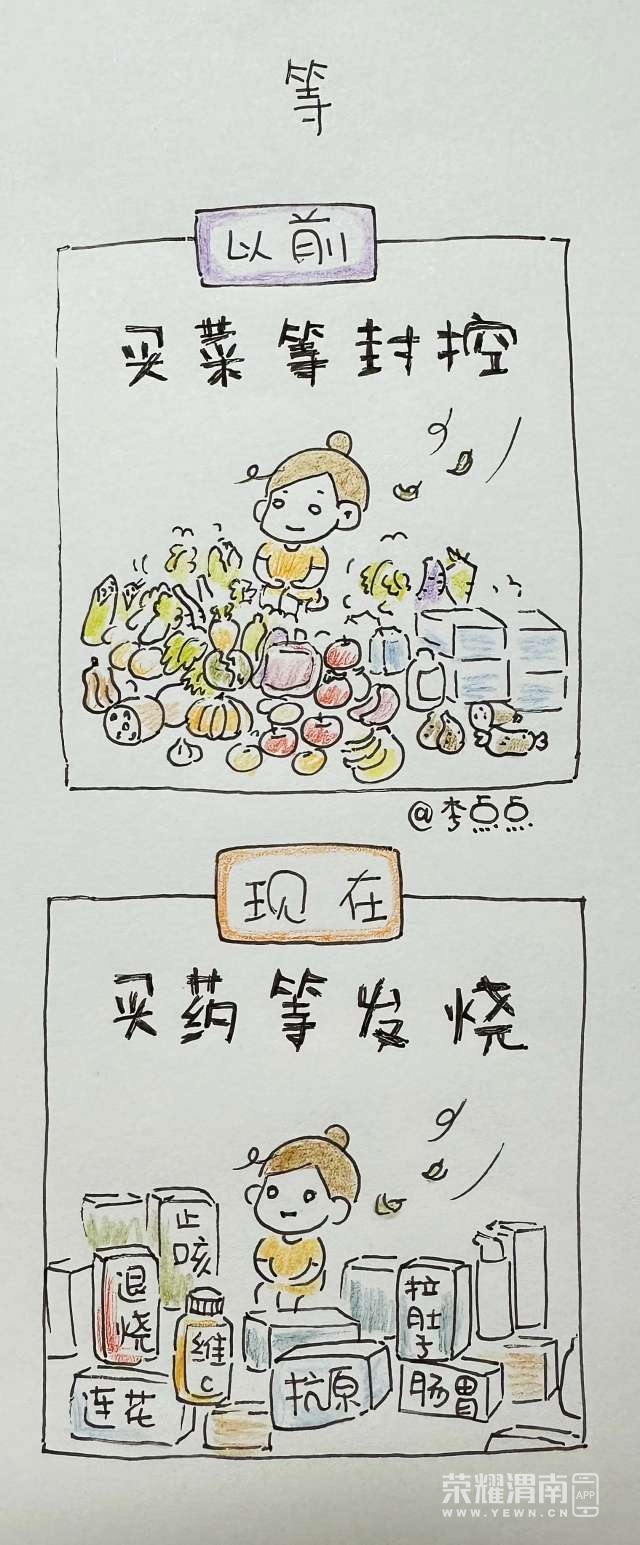 等
以前
买菜等封控
@李点点
现在
买药等发烧
止咳
退烧
維C
连花
抗原
拉肚子
肠胃
荣耀渭南 APP
WWW.YEWN.CN